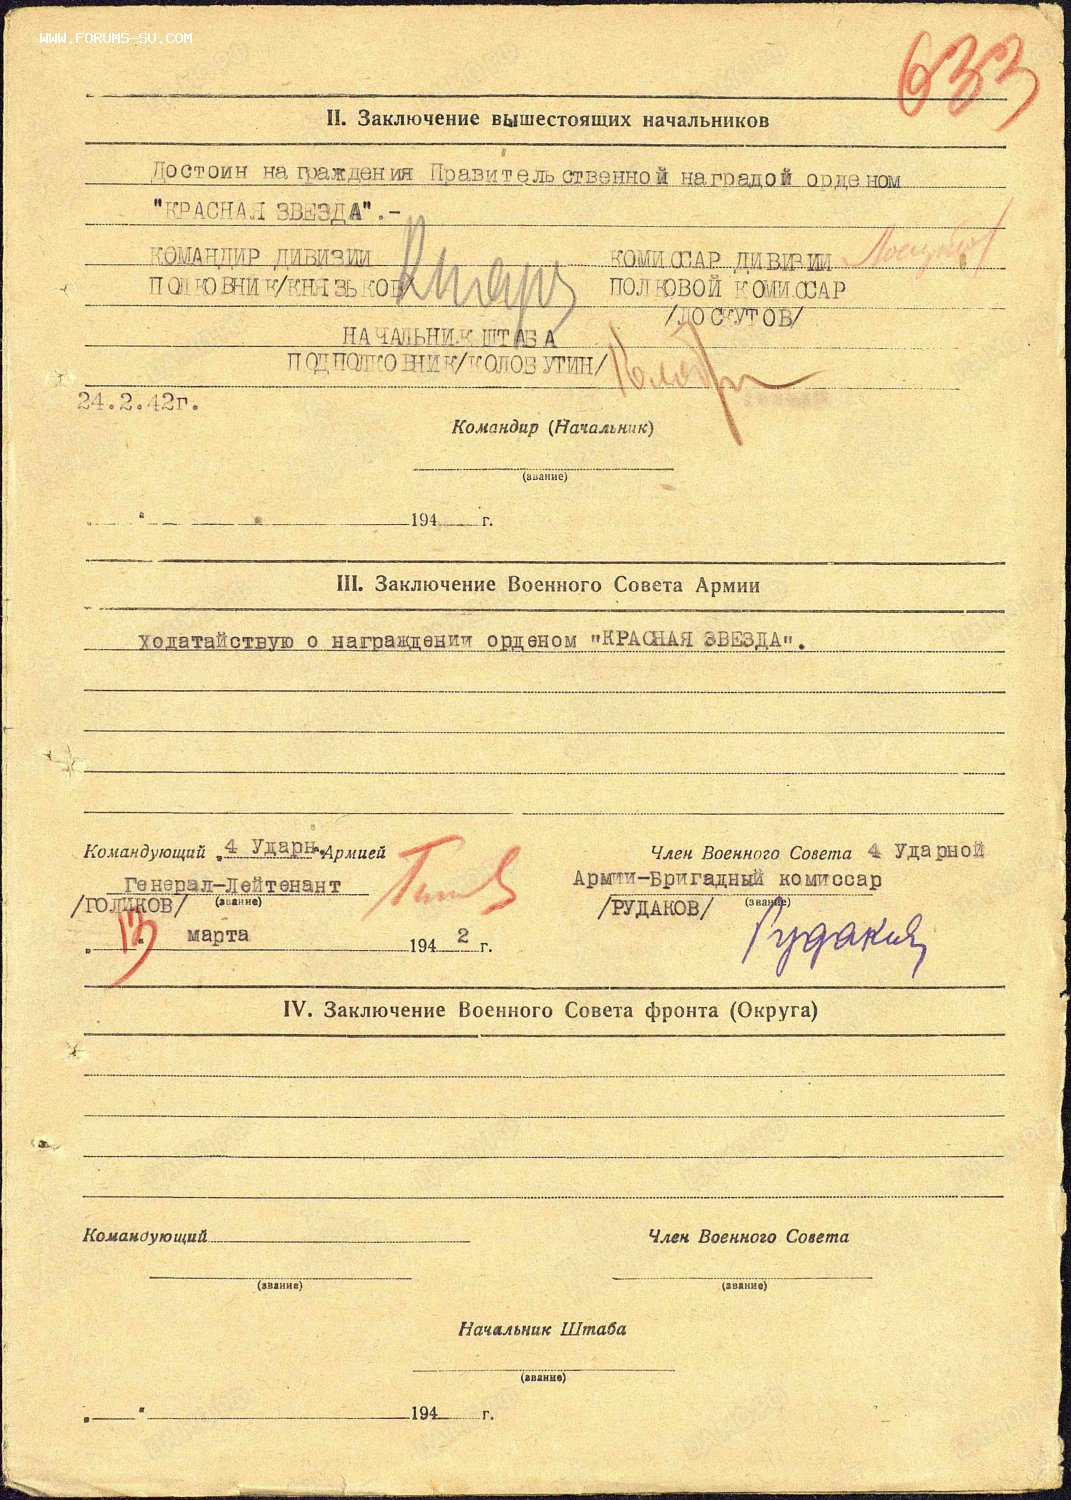 WWW.FORUMS-SU.COM
633
II. Заключение вышестоящих начальников
Достоин награждения Правительственной наградой орденом
"КРАСНАЯ ЗВЕЗДА".-
КОМАНДИР ДИВИЗИИ
ПОЛКОВНИК/КНЯЗЬКОВ/
КОМИССАР ДИВИЗИИ
ПОЛКОВОЙ КОМИССАР
/ЛОСКУТОВ/
НАЧАЛЬНИК ШТАБА
ПОДПОЛКОВНИК/КОЛОБУТИН/
24.2.42г.
Командир (Начальник)
(звание)
„ “ 194 г.
III. Заключение Военного Совета Армии
Ходатайствую о награждении орденом "КРАСНАЯ ЗВЕЗДА".
Командующий „4 Ударн.“ Армией
Генерал-Лейтенант
(звание)
/ГОЛИКОВ/
„13“ марта 1942 г.
Член Военного Совета 4 Ударной
Армии-Бригадный комиссар
(звание)
/РУДАКОВ/
Рудаков
IV. Заключение Военного Совета фронта (Округа)
Командующий
(звание)
Член Военного Совета
(звание)
Начальник Штаба
(звание)
„ “ 194 г.